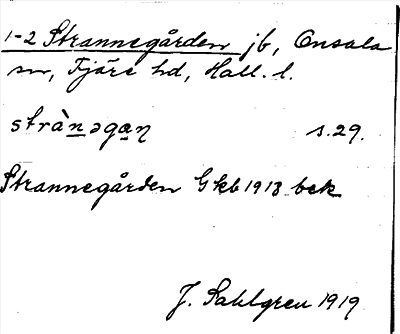 1-2 Strannegården jb, Onsala
sn, Fjäre hd, Hall. l.
strànəgaɳ s. 29.
Strannegården Gkb 1918 bek
J. Sahlgren 1919